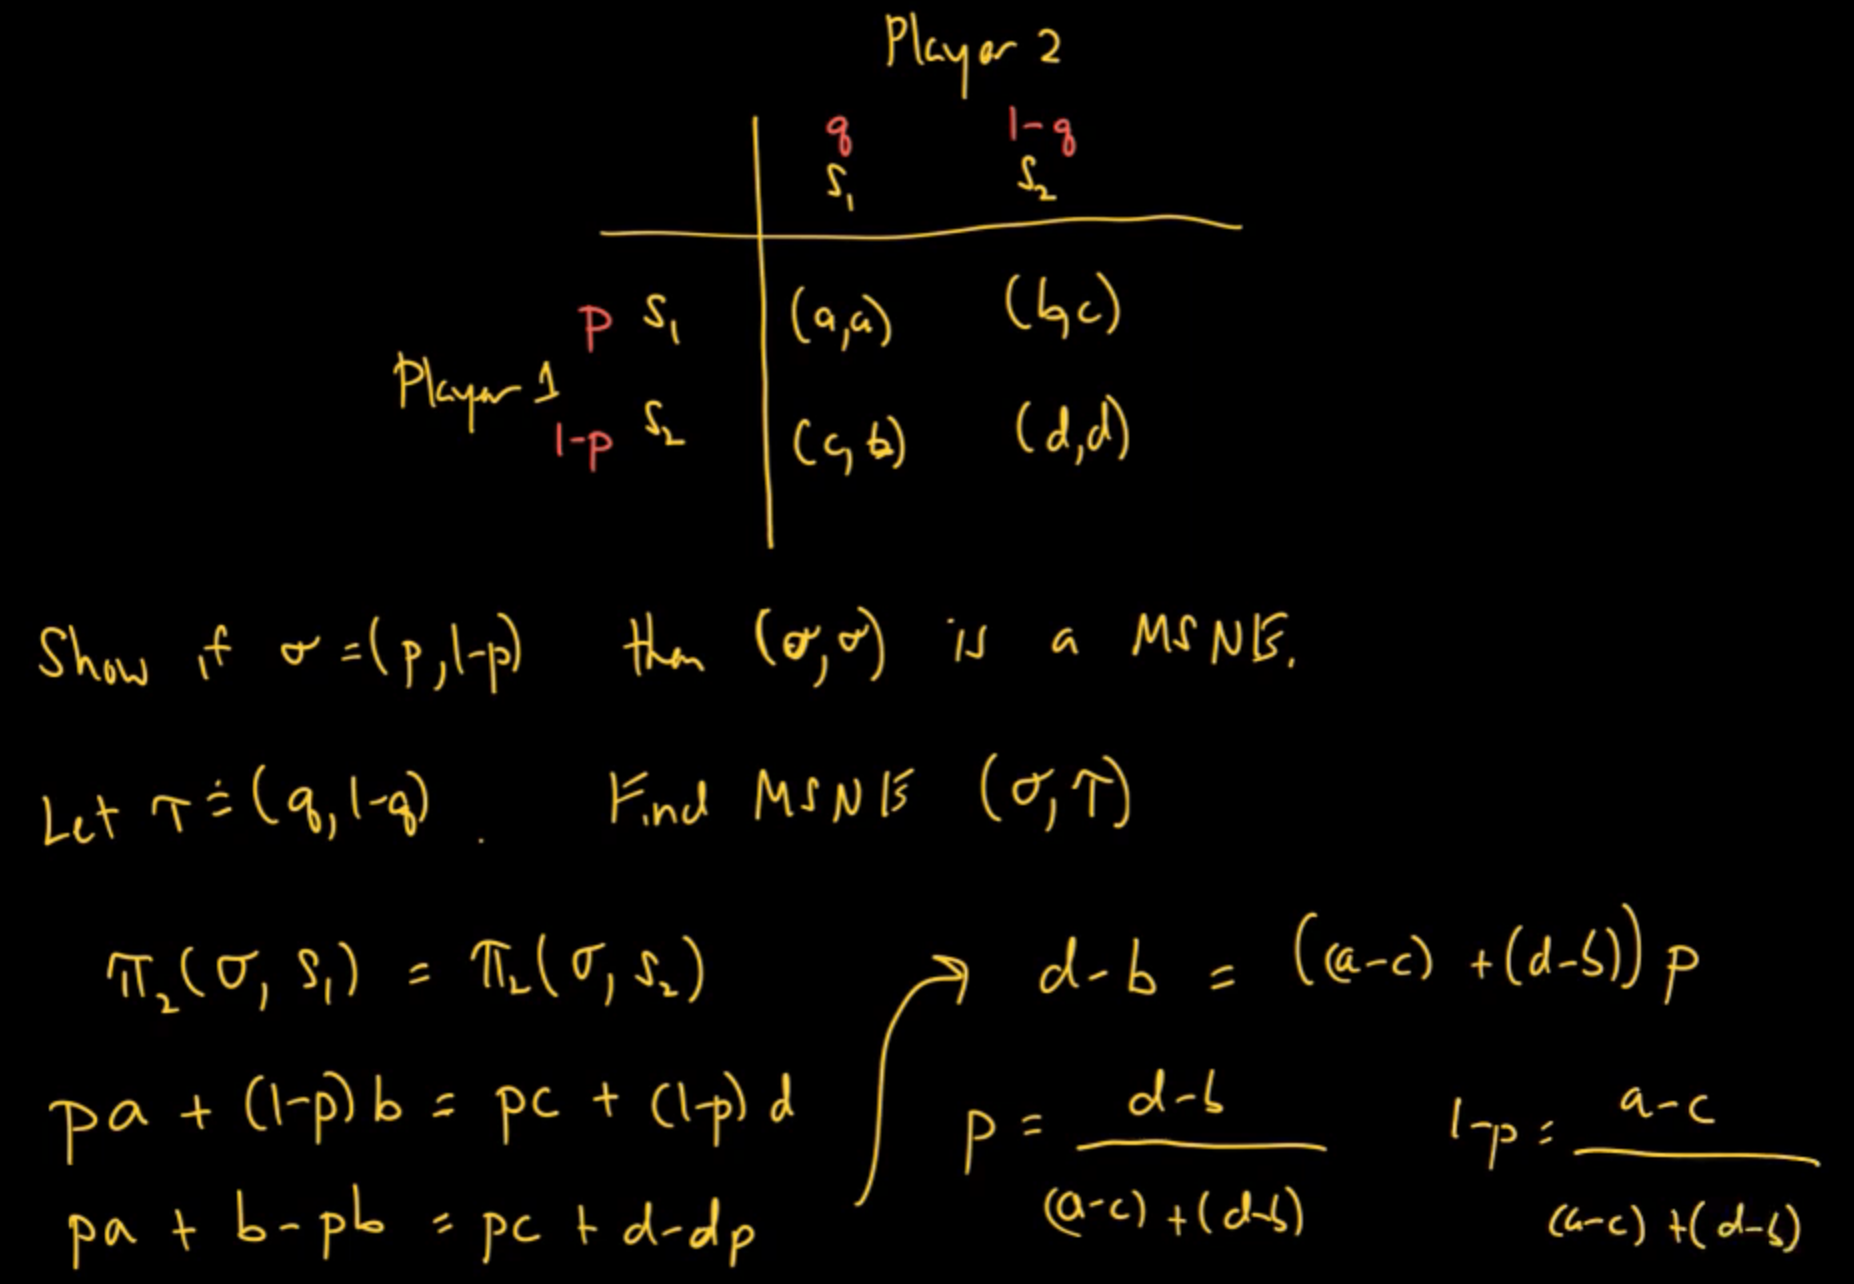 Player 2
q 1-q
S₁ S₂
p S₁ (a,a) (b,c)
Player 1
1-p S₂ (c,b) (d,d)
Show if σ = (p,1-p) then (σ,σ) is a MSNE.
Let τ ≐ (q,1-q). Find MSNE (σ,τ)
π₂(σ, S₁) = π₂(σ, S₂)
pa + (1-p)b = pc + (1-p)d
pa + b-pb = pc + d-dp
d-b = ((a-c) + (d-b))p
p = (d-b)/((a-c) + (d-b)) 1-p = (a-c)/((a-c) + (d-b))